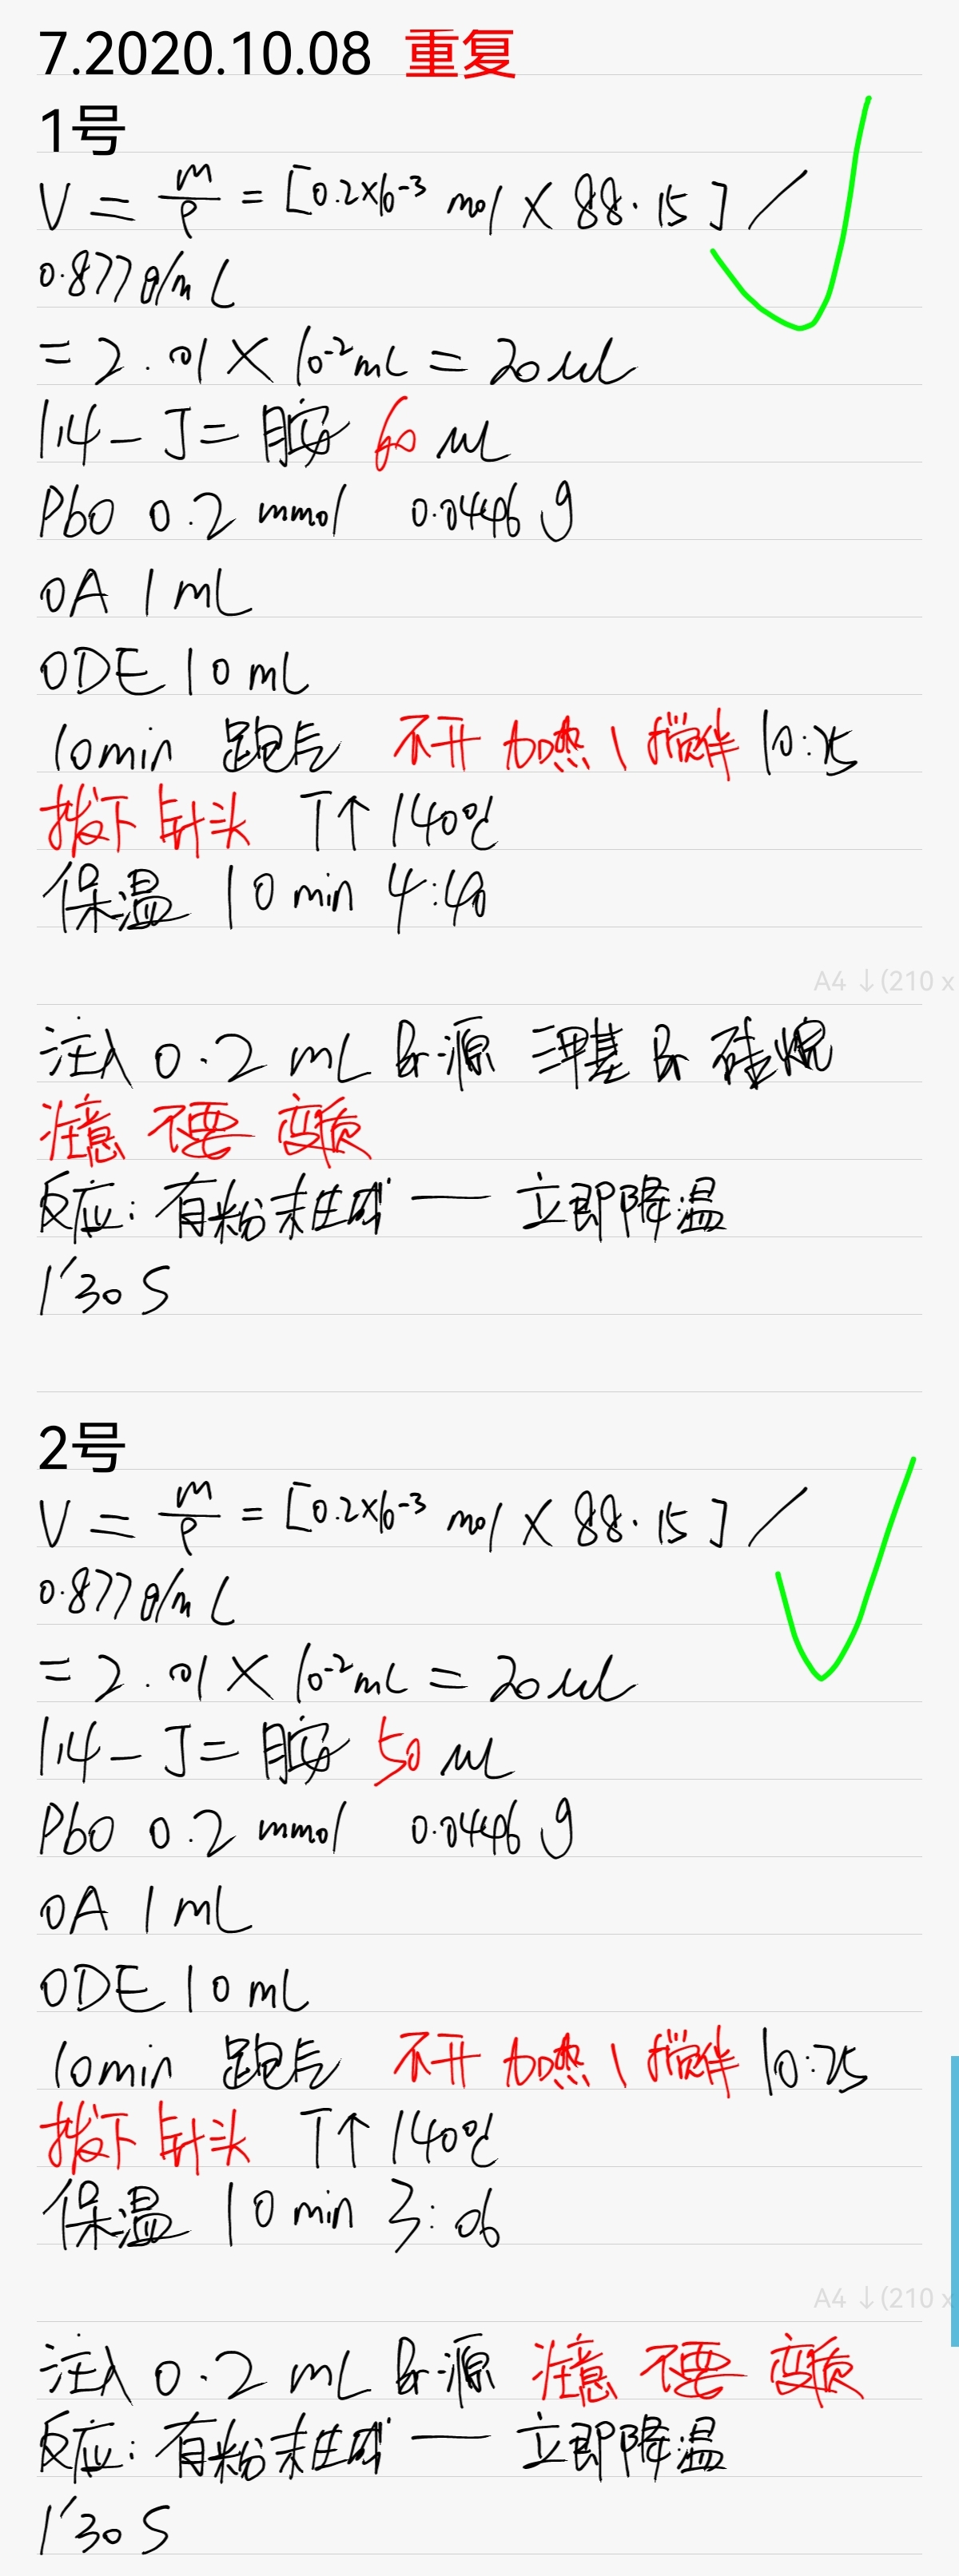 7.2020.10.08 重复
1号
V = m/ρ = [0.2×10⁻³ mol × 88.15] /
0.877g/mL
= 2.01 × 10⁻² mL = 20 uL
1,4-丁二胺 60 uL
PbO 0.2 mmol 0.0446 g
OA 1 mL
ODE 10 mL
10min 跑后 不开加热、搅拌 10:25
拔下针头 T↑ 140℃
保温 10 min 4:40
A4 ↓(210 x
注入 0.2 mL Br源 三甲基Br硅烷
注意 不要 变质
反应: 有粉末生成 — 立即降温
1′30 S
2号
V = m/ρ = [0.2×10⁻³ mol × 88.15] /
0.877g/mL
= 2.01 × 10⁻² mL = 20 uL
1,4-丁二胺 50 uL
PbO 0.2 mmol 0.0446 g
OA 1 mL
ODE 10 mL
10min 跑后 不开加热、搅拌 10:25
拔下针头 T↑ 140℃
保温 10 min 3:06
A4 ↓(210 x
注入 0.2 mL Br源 注意 不要 变质
反应: 有粉末生成 — 立即降温
1′30 S